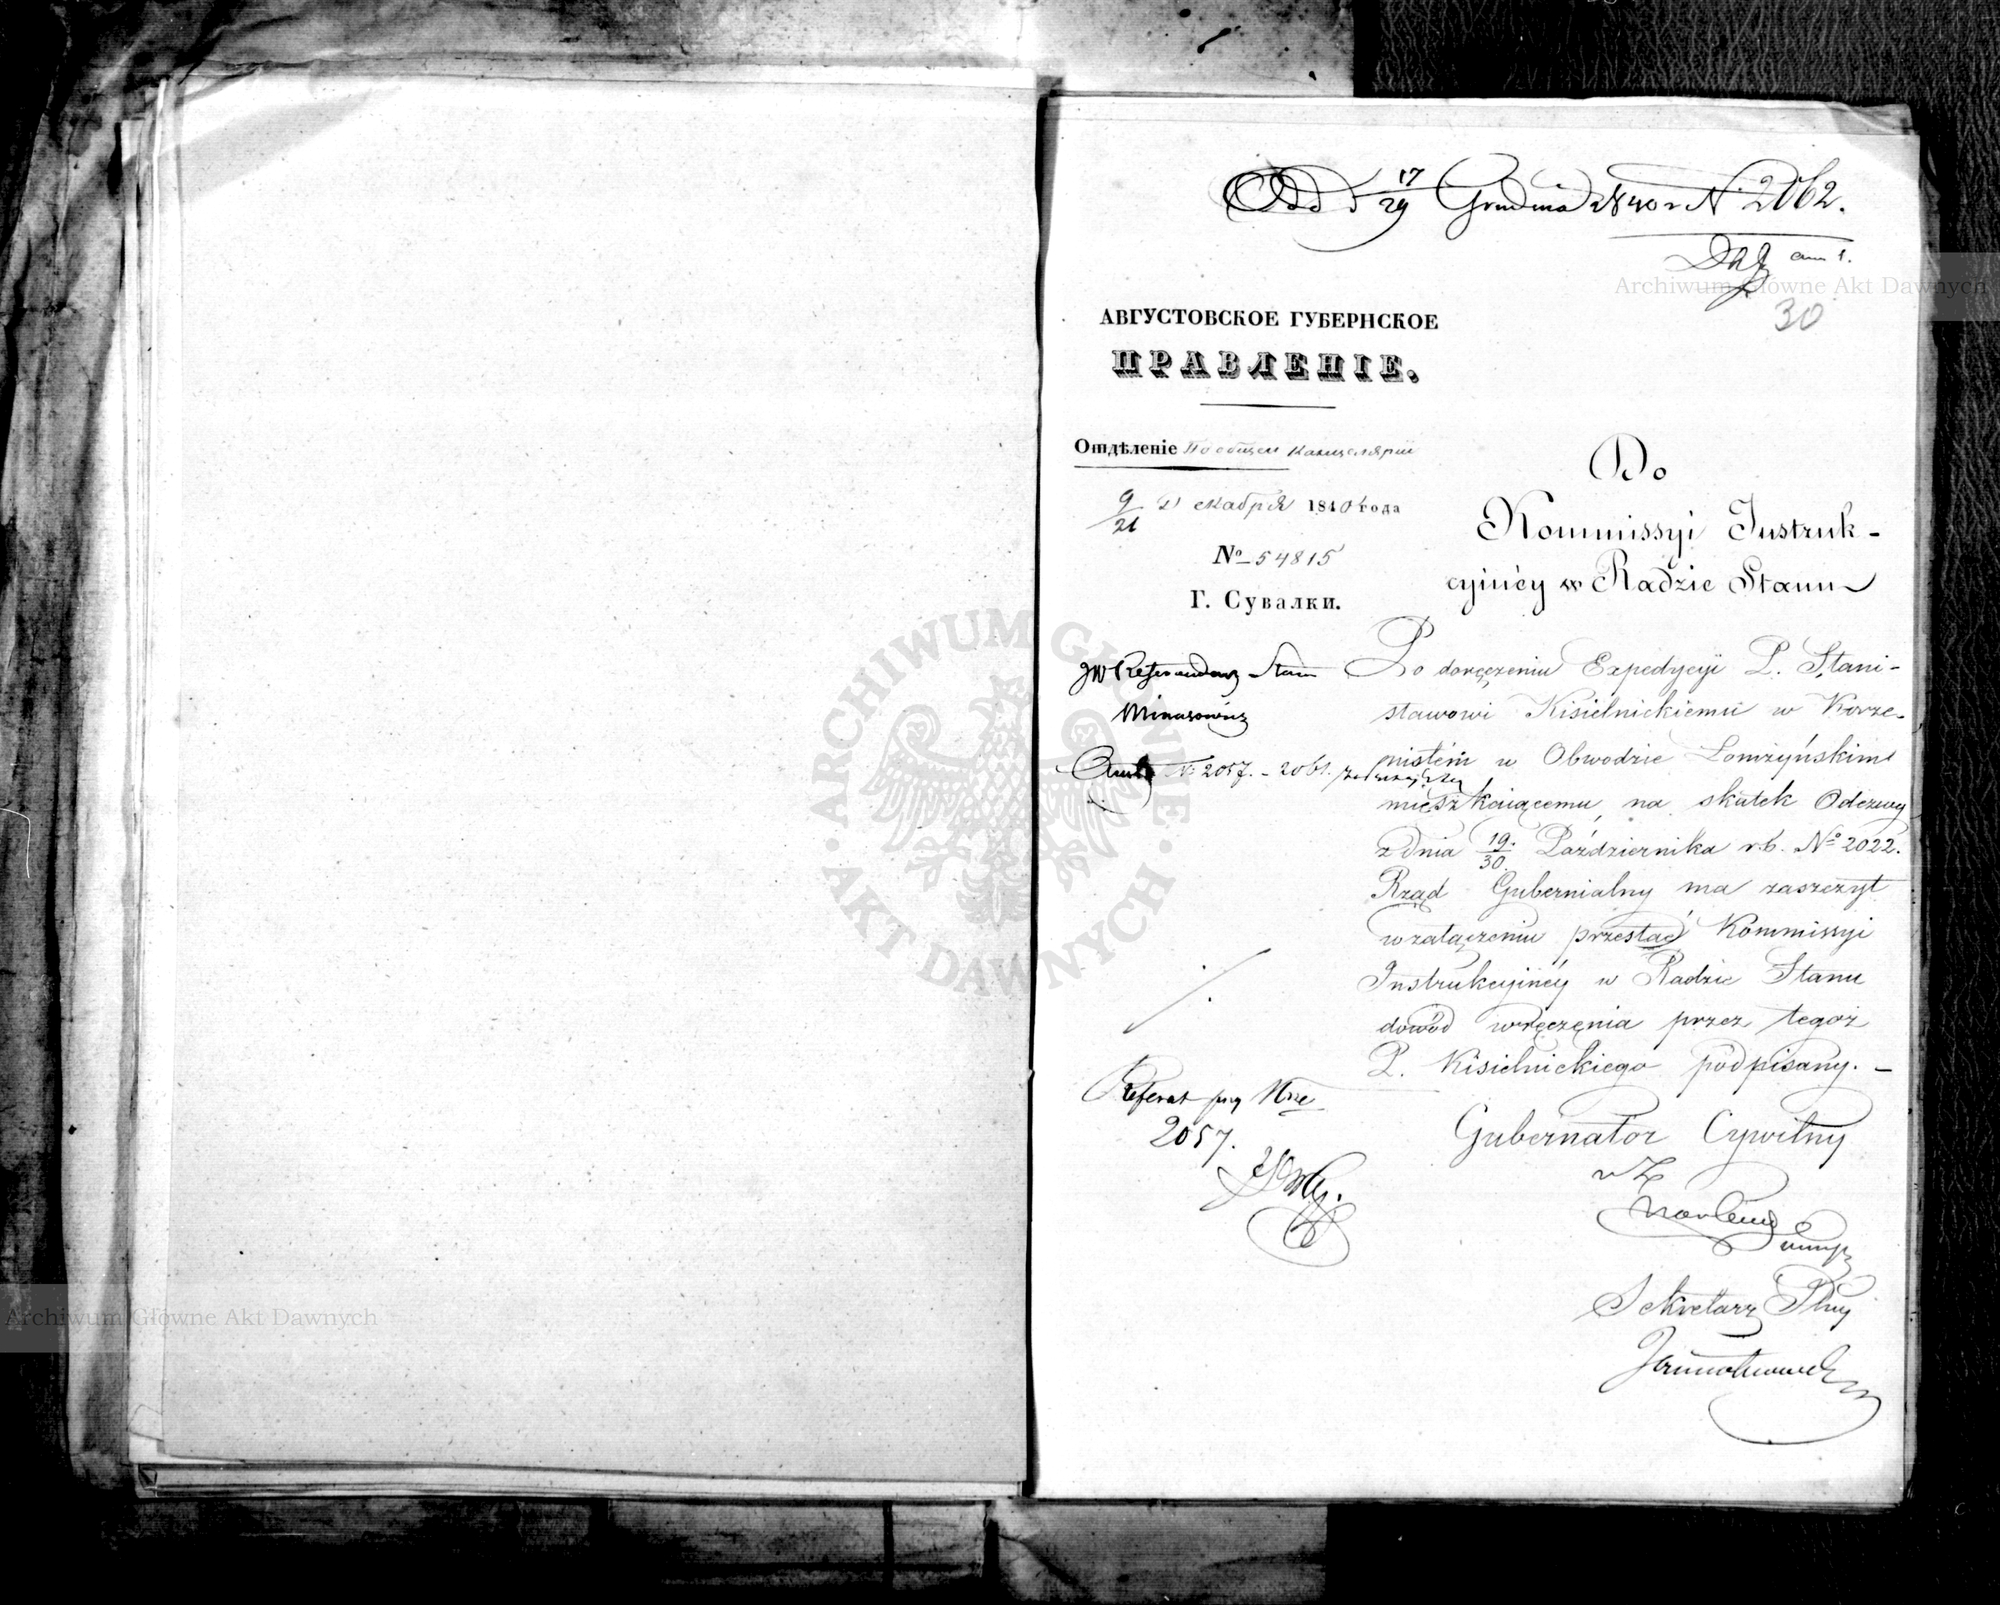 Odd d 17/29 Grudnia 1840 r N. 2062.
ann 1.
30
АВГУСТОВСКОЕ ГУБЕРНСКОЕ
ПРАВЛЕНІЕ.
Отдѣленіе По общей Канцеляріи
9/21 Декабря 1840 года
№ 54815
Г. Сувалки.
Do
Kommissyi Instruk-
cyinéy w Radzie Stanu
JW Referendarz Stanu
Minasowicz
Po doręczeniu Expedycyi P. Stani-
sławowi Kisielnickiemu w Korze-
nistém w Obwodzie Łomżyńskim
N. 2057. - 2061.
mięszkaiącemu, na skutek Odezwy
z dnia 19/30 Października r.b. No 2022.
Rząd Gubernialny ma zaszczyt
w załączeniu przesłać Kommissyi
Instrukcyinéy w Radzie Stanu
dowód wręczenia przez tegoż
P. Kisielnickiego podpisany. -
Referat przy Nrze
2057.
Gubernator Cywilny
w Z
Sekretarz
Archiwum Główne Akt Dawnych
Archiwum Główne Akt Dawnych
ARCHIWUM GŁÓWNE
AKT DAWNYCH